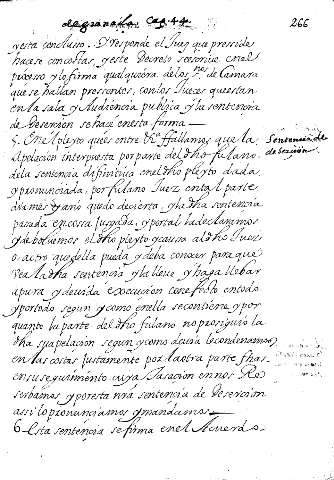 de granada. Cap. 44 266
y esta concluso. Y Responde el Juez que presside
hacese con costas, y este Decreto se escriue en el
proceso y lo firma qualquiera de los ss.nos de Camara
que se hallan pressentes, con los Jueces que estan
en la sala y Audiencia publica y la sentencia
de Desercion se hace en esta forma
5. En el pleyto que es entre &.a ffallamos que la
Apelacion interpuesta por parte del dho fulano
de la sentencia difinitiua en el dho pleyto dada
y pronunciada, por fulano Juez en tal parte
dia mes y año quedo decierta, y la dha sentencia
pasada en cossa Juzgada, y por tal la declaramos
y deboluemos el dho pleyto y causa al dho Juez
o a otro que della pueda y deba conocer para que
vea la dha sentencia y la lleue, y haga llebar
a pura y deuida execucion con efecto en todo
y por todo segun y como en ella se contiene, y por
quanto la parte del dho fulano no prosiguio la
dha su apelacion segun y como deuia le condenamos
en las costas justamente por la otra parte fhas
en su seguimiento cuya tasacion en nos Re
serbamos, y por esta nrã sentencia de desercion
assi lo pronunciamos y mandamos
6. Esta sentencia se firma en el Acuerdo
Sentencia de
deserción.